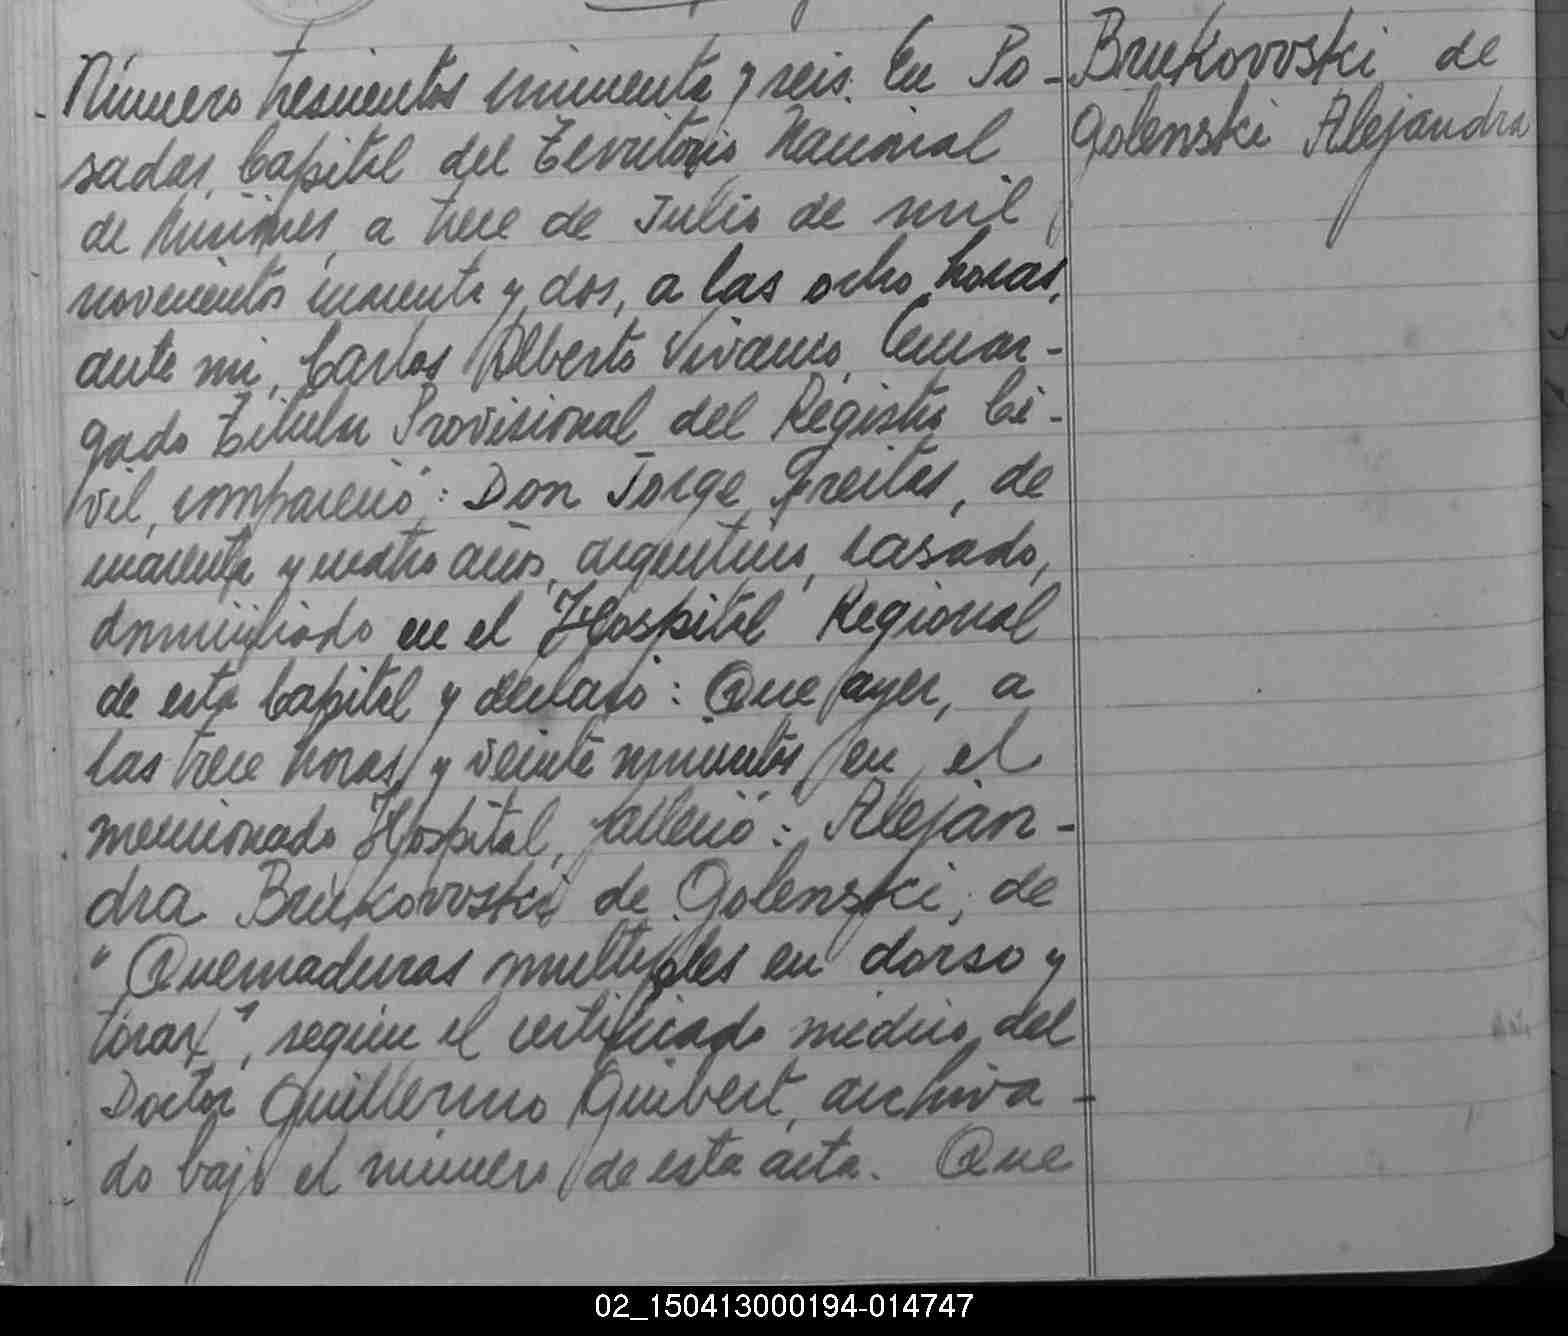 Número trescientos cincuenta y seis. En Po-
sadas, Capital del Territorio Nacional
de Misiones, a trece de Julio de mil
novecientos cuarenta y dos, a las ocho horas,
ante mi, Carlos Alberto Vivanco, Encar-
gado Titular Provisional del Registro Ci-
vil, compareció: Don Jorge Freitas, de
cuarenta y cuatro años, argentino, casado,
domiciliado en el Hospital Regional
de esta Capital y declaró: Que ayer, a
las trece horas y veinte minutos, en el
mencionado Hospital, falleció: Alejan-
dra Brukovvski de Golenski, de
"Quemaduras multiples en dorso y
torax", según el certificado médico del
Doctor Guillermo Guibert, archiva-
do bajo el número de esta acta. Que
Brukovvski de
Golenski Alejandra
02_150413000194-014747